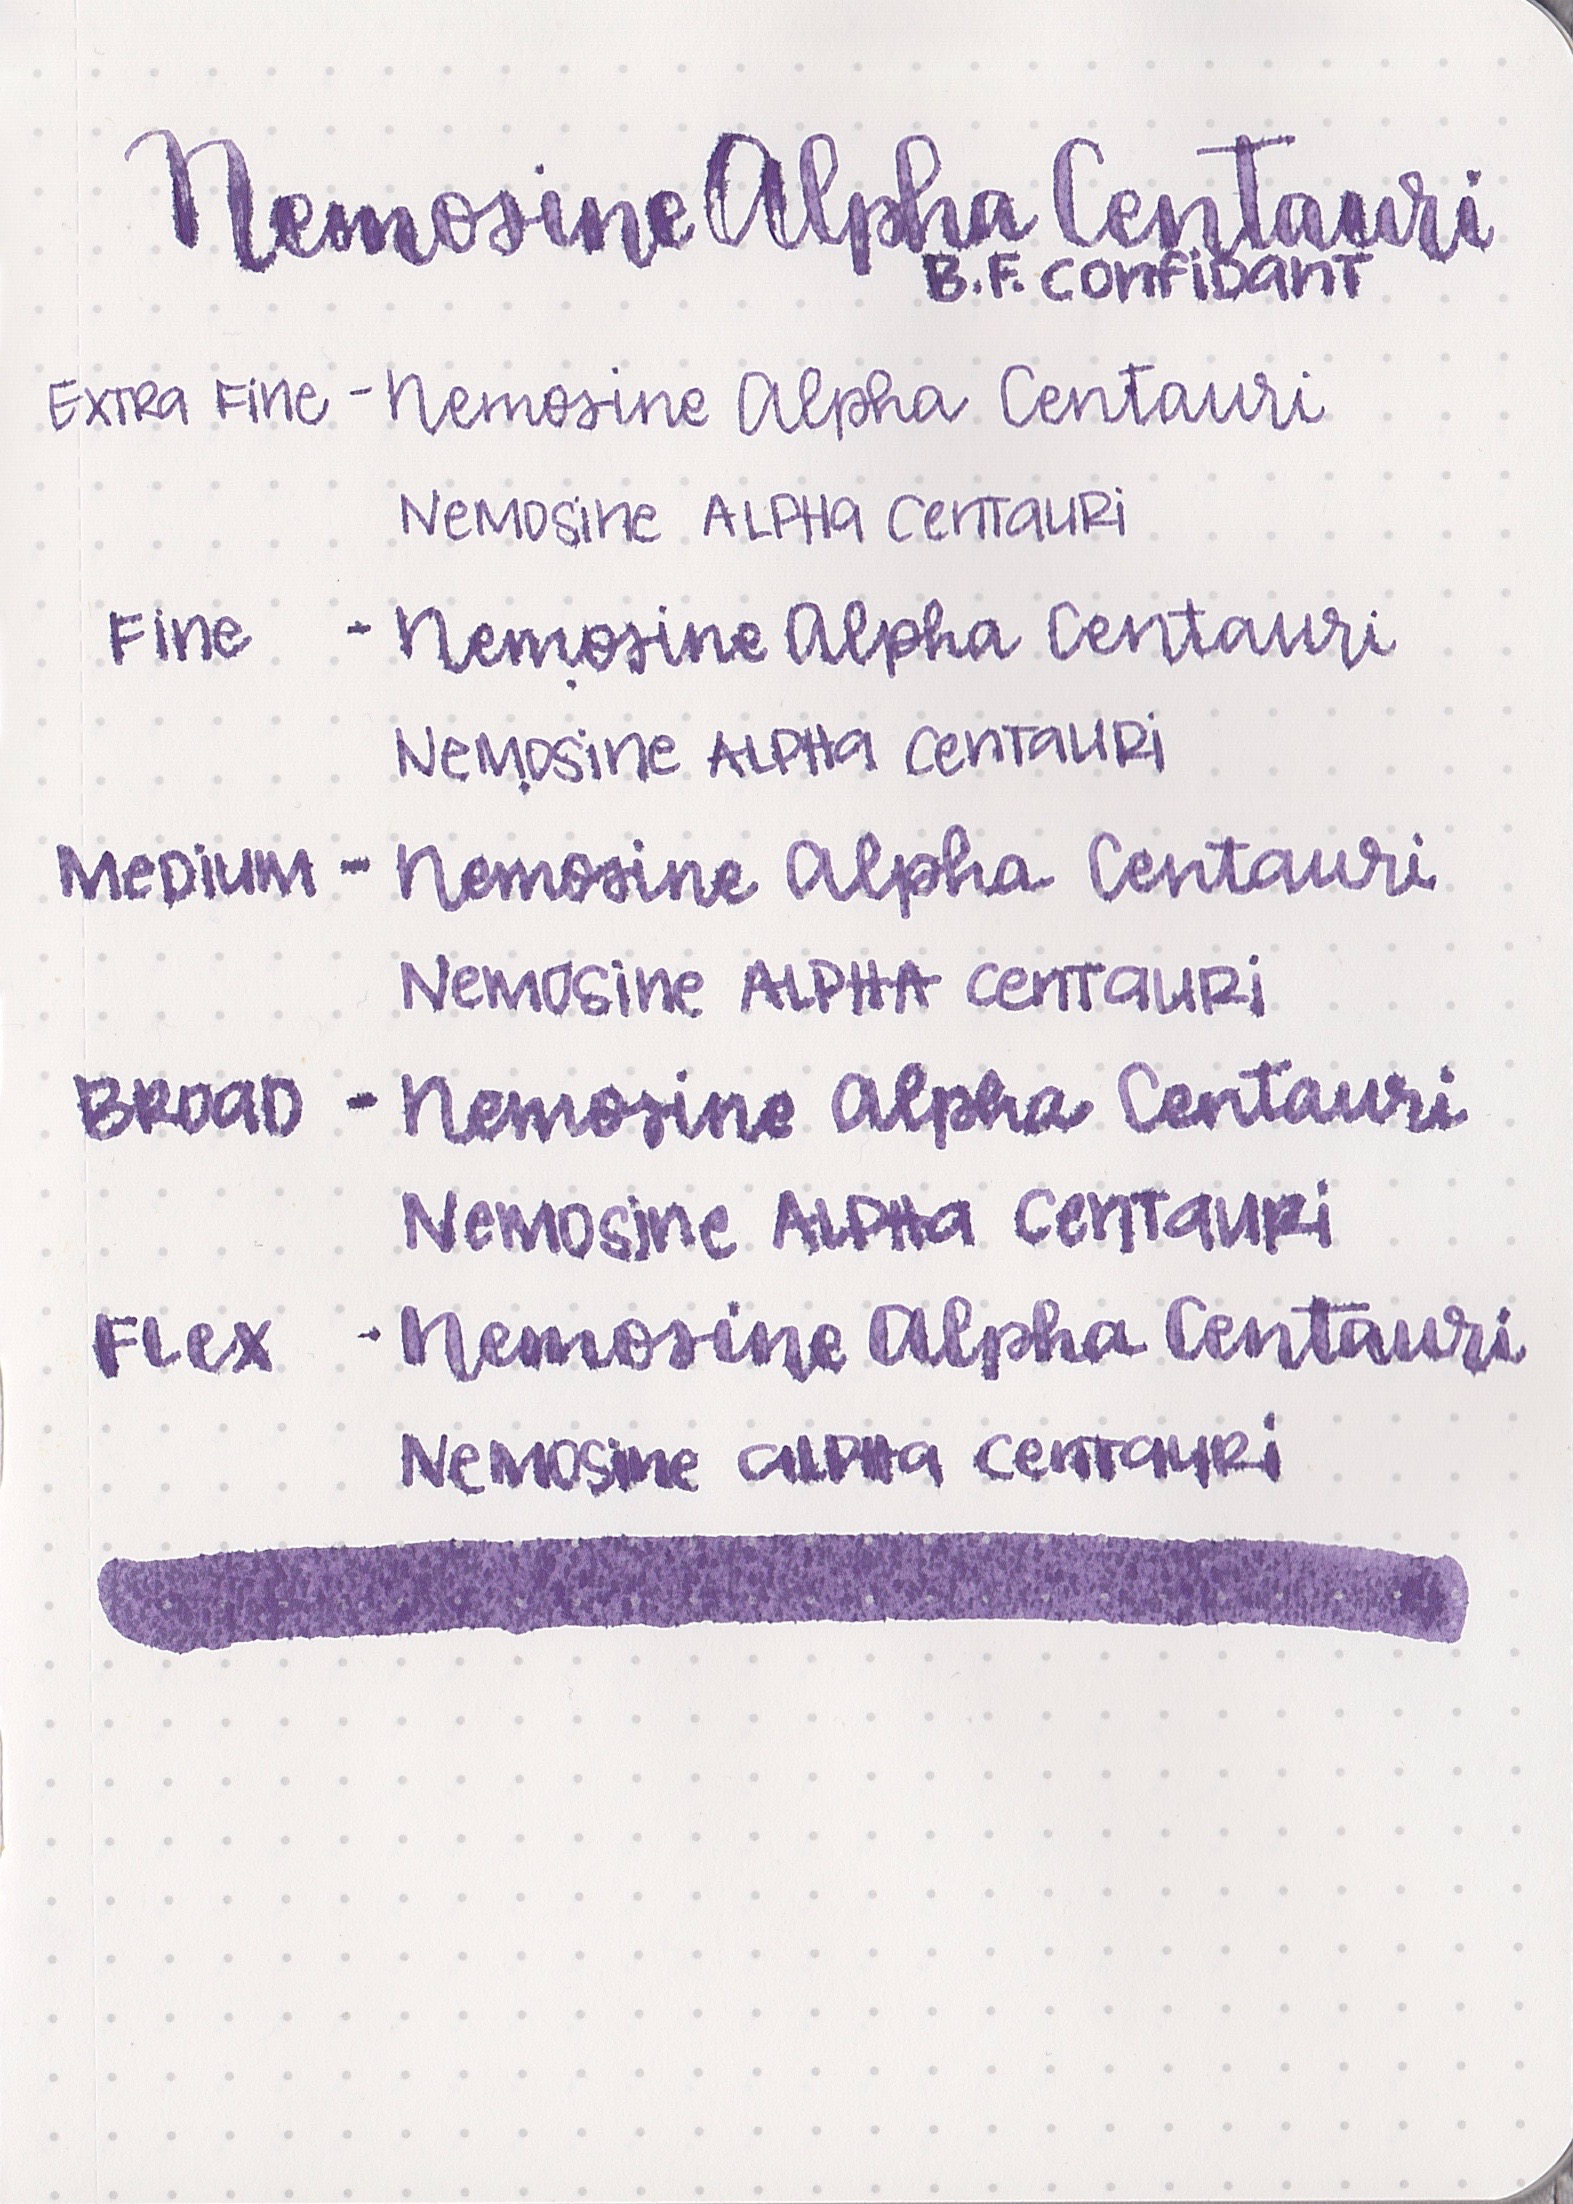 Nemosine Alpha Centauri
B.F. Confidant
Extra Fine - Nemosine Alpha Centauri
Nemosine Alpha Centauri
Fine - Nemosine Alpha Centauri
Nemosine Alpha Centauri
Medium - Nemosine Alpha Centauri
Nemosine Alpha Centauri
Broad - Nemosine Alpha Centauri
Nemosine Alpha Centauri
Flex - Nemosine Alpha Centauri
Nemosine Alpha Centauri